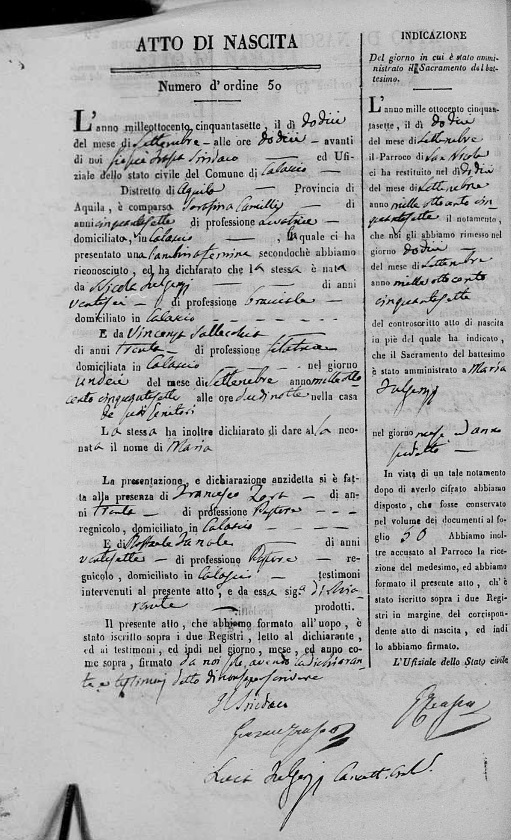 ATTO DI NASCITA
Numero d'ordine 50
L'anno milleottocento cinquantasette, il dì dodici
del mese di Settembre — alle ore dodici — avanti
di noi Sindaco ed Ufi-
ziale dello stato civile del Comune di Calascio —
Distretto di Aquila — Provincia di
Aquila, è comparsa Serafina Camilli — di
anni cinquantasette di professione —
domiciliata, in Calascio — , la quale ci ha
presentato una bambina femina secondochè abbiamo
riconosciuto, ed ha dichiarato che la stessa è nata
da Nicola Fulgenzj — di anni
ventisei — di professione bracciale —
domiciliato in Calascio —
E da Vincenza —
di anni trenta — di professione filatrice
domiciliata in Calascio — nel giorno
undici del mese di Settembre anno mille otto
cento cinquantasette alle ore diciannotte nella casa
de' suoi genitori
La stessa ha inoltre dichiarato di dare alla neo-
nata il nome di Maria
La presentazione, e dichiarazione anzidetta si è fat-
ta alla presenza di Francesco — di an-
ni trenta — di professione Pastore - - -
regnicolo, domiciliato in Calascio —
E di Raffaele — di anni
ventisette — di professione Pastore — re-
gnicolo, domiciliato in Calascio — testimoni
intervenuti al presente atto, e da essa sig.a dichia
rante — prodotti.
Il presente atto, che abbiamo formato all'uopo, è
stato iscritto sopra i due Registri, letto al dichiarante,
ed ai testimoni, ed indi nel giorno, mese, ed anno co-
me sopra, firmato da noi avendo la dichiaran
te e testimonj detto di non saper scrivere
Il Sindaco
Fulgenzj
INDICAZIONE
Del giorno in cui è stato ammi-
nistrato il Sacramento del bat-
tesimo.
L'anno mille ottocento cinquan-
tasette, il dì dodici
del mese di Settembre
il Parroco di San Nicola
ci ha restituito nel dì dodici
del mese di Settembre
anno mille otto cento cin
quantasette il notamento,
che noi gli abbiamo rimesso nel
giorno dodici
del mese di Settembre
anno mille otto cento
cinquantasette
del controscritto atto di nascita
in piè del quale ha indicato,
che il Sacramento del battesimo
è stato amministrato a Maria
Fulgenzj
nel giorno mese ed anno
sudetto —
In vista di un tale notamento
dopo di averlo cifrato abbiamo
disposto, che fosse conservato
nel volume dei documenti al fo-
glio 50 Abbiamo inol-
tre accusato al Parroco la rice-
zione del medesimo, ed abbiamo
formato il presente atto, ch'è
stato iscritto sopra i due Regi-
stri in margine del corrispon-
dente atto di nascita, ed indi
lo abbiamo firmato.
L'Ufiziale dello Stato civile